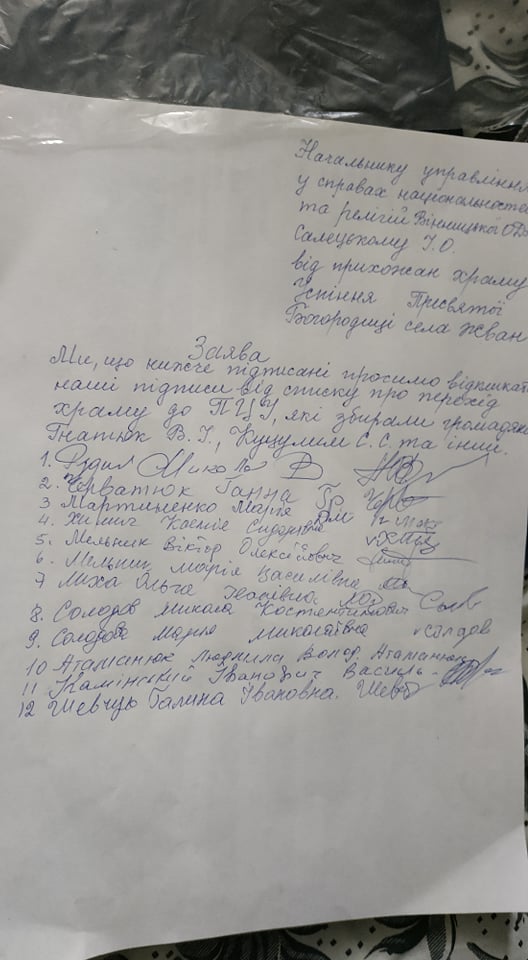 Начальнику управління
у справах національносте
та релігій Вінницької ОД
Салецькому І.О.
від прихожан храму
Успіння Пресвятої
Богородиці села Жван
Заява
Ми, що нижче підписані просимо відкликати
наші підписи від списку про перехід
храму до ПЦУ, які збирали громадяни
Гнатюк В. І., Куцулим С. С. та інши.
1. Микола
2. Черватюк Ганна Гр
3 Мартиненко Марія
4. Ксенія Сидорівна
5. Мельник Віктор Олексійович
6. Мельник Марія Василівна
7 Миха Ольга
8. Солодов Микола Костянтинович
9. Солодова Марія Миколаївна солодов
10 Атаманюк Людмила Волод. Атаманюк
11 Камінський Іванович Василь
12 Шевчук Галина Івановна. Шевч